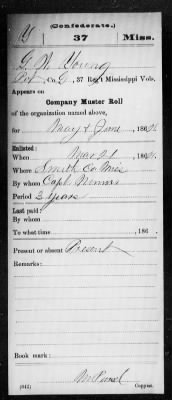 (Confederate.)
Y 37 Miss.
G. W. Young
Pvt, Co. G, 37 Reg't Mississippi Vols.
Appears on
Company Muster Roll
of the organization named above,
for May & June, 1862.
Enlisted:
When Mar 21, 1862.
Where Smith Co Miss
By whom Capt.
Period 2 years
Last paid:
By whom
To what time , 186 .
Present or absent Present
Remarks:
Book mark:
(642) Copyist.